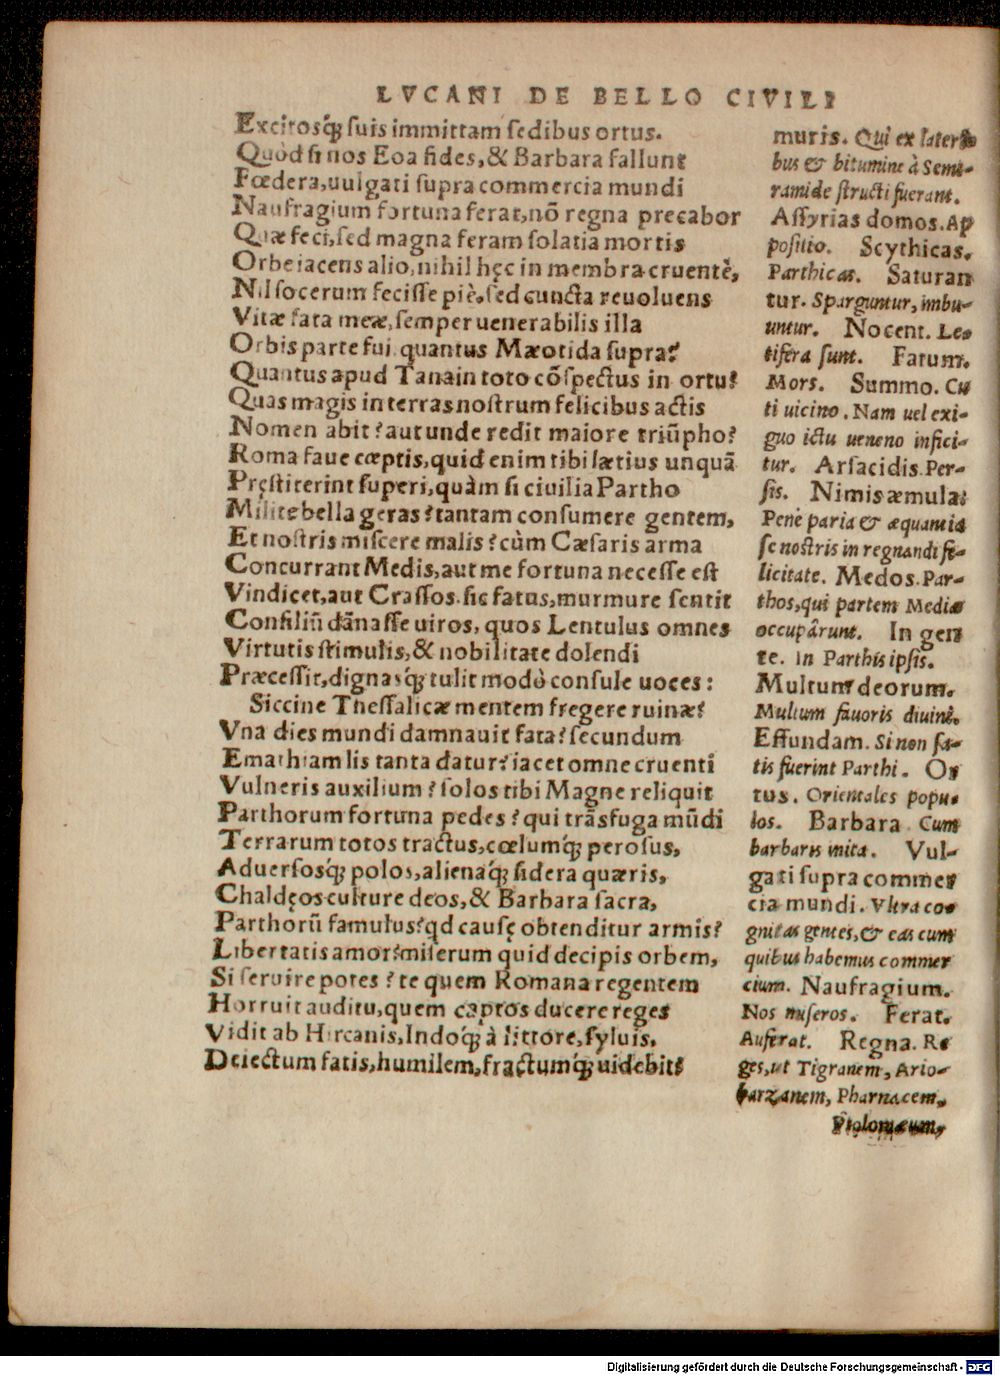 LVCANI DE BELLO CIVILI
Excitosq́; suis immittam sedibus ortus.
Quòd si nos Eoa fides, & Barbara fallunt
Fœdera, uulgati supra commercia mundi
Naufragium fortuna ferat, nō regna precabor
Quæ feci, sed magna feram solatia mortis
Orbe iacens alio, nihil hęc in membra cruentè,
Nil socerum fecisse piè, sed cuncta reuoluens
Vitæ fata meæ, semper uenerabilis illa
Orbis parte fui. quantus Mæotida supra?
Quantus apud Tanain toto cōspectus in ortu?
Quas magis in terras nostrum felicibus actis
Nomen abit? aut unde redit maiore triūpho?
Roma faue cœptis, quid enim tibi lætius unquā
Pręstiterint superi, quàm si ciuilia Partho
Milite bella geras? tantam consumere gentem,
Et nostris miscere malis? cùm Cæsaris arma
Concurrant Medis, aut me fortuna necesse est
Vindicet, aut Crassos. sic fatus, murmure sentit
Consiliū dānasse uiros, quos Lentulus omnes
Virtutis stimulis, & nobilitate dolendi
Præcessit, dignasq́; tulit modò consule uoces:
Siccine Thessalicæ mentem fregere ruinæ?
Vna dies mundi damnauit fata? secundum
Emathiam lis tanta datur? iacet omne cruenti
Vulneris auxilium? solos tibi Magne reliquit
Parthorum fortuna pedes? qui trāsfuga mūdi
Terrarum totos tractus, cœlumq́; perosus,
Aduersosq́; polos, alienaq́; sidera quæris,
Chaldęos culture deos, & Barbara sacra,
Parthorū famulus? qd causę obtenditur armis?
Libertatis amor? miserum quid decipis orbem,
Si seruire potes? te quem Romana regentem
Horruit auditu, quem captos ducere reges
Vidit ab Hircanis, Indoq́; à littore, syluis,
Deiectum fatis, humilem, fractumq́; uidebit?
muris. Qui ex lateri-
bus & bitumine à Semi-
ramide structi fuerant.
Assyrias domos. Ap
positio. Scythicas.
Parthicas. Saturan
tur. Sparguntur, imbu-
untur. Nocent. Le-
tifera sunt. Fatum.
Mors. Summo. Cu
ti uicino. Nam uel exi-
guo ictu ueneno infici-
tur. Arsacidis. Per-
sis. Nimis æmula:
Penè paria & æquantia
se nostris in regnandi fe-
licitate. Medos. Par-
thos, qui partem Mediæ
occupârunt. In gen
te. In Parthis ipsis.
Multum deorum.
Multum fauoris diuini.
Effundam. Si non sa-
tis fuerint Parthi. Or
tus. Orientales popu-
los. Barbara. Cum
barbaris inita. Vul-
gati supra commer
cia mundi. Vltra co-
gnitas gentes, & eas cum
quibus habemus commer
cium. Naufragium.
Nos miseros. Ferat.
Auferat. Regna. Re
ges, ut Tigranem, Ario-
barzanem, Pharnacem,
Ptolomæum,
Digitalisierung gefördert durch die Deutsche Forschungsgemeinschaft - DFG